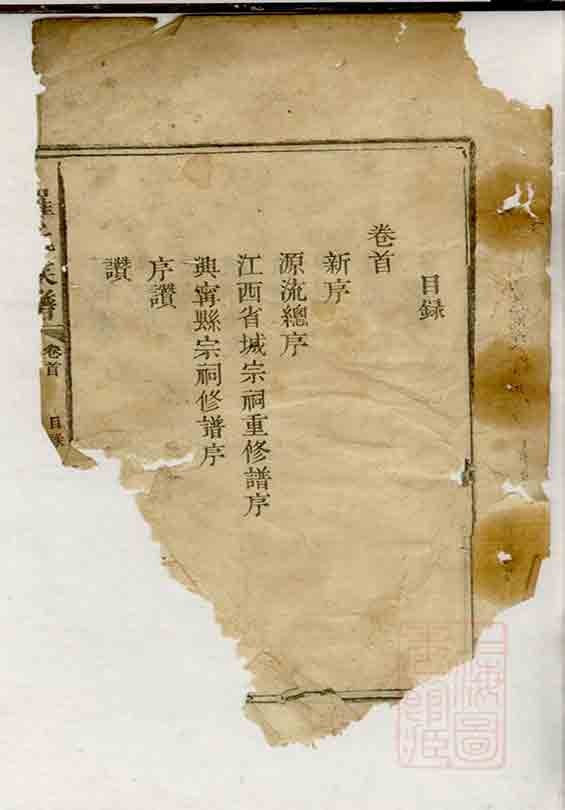 目錄
卷首
新序
源流總序
江西省城宗祠重修譜序
興甯縣宗祠修譜序
序讚
讚
羅氏族譜
卷首
目錄
上海圖書館藏